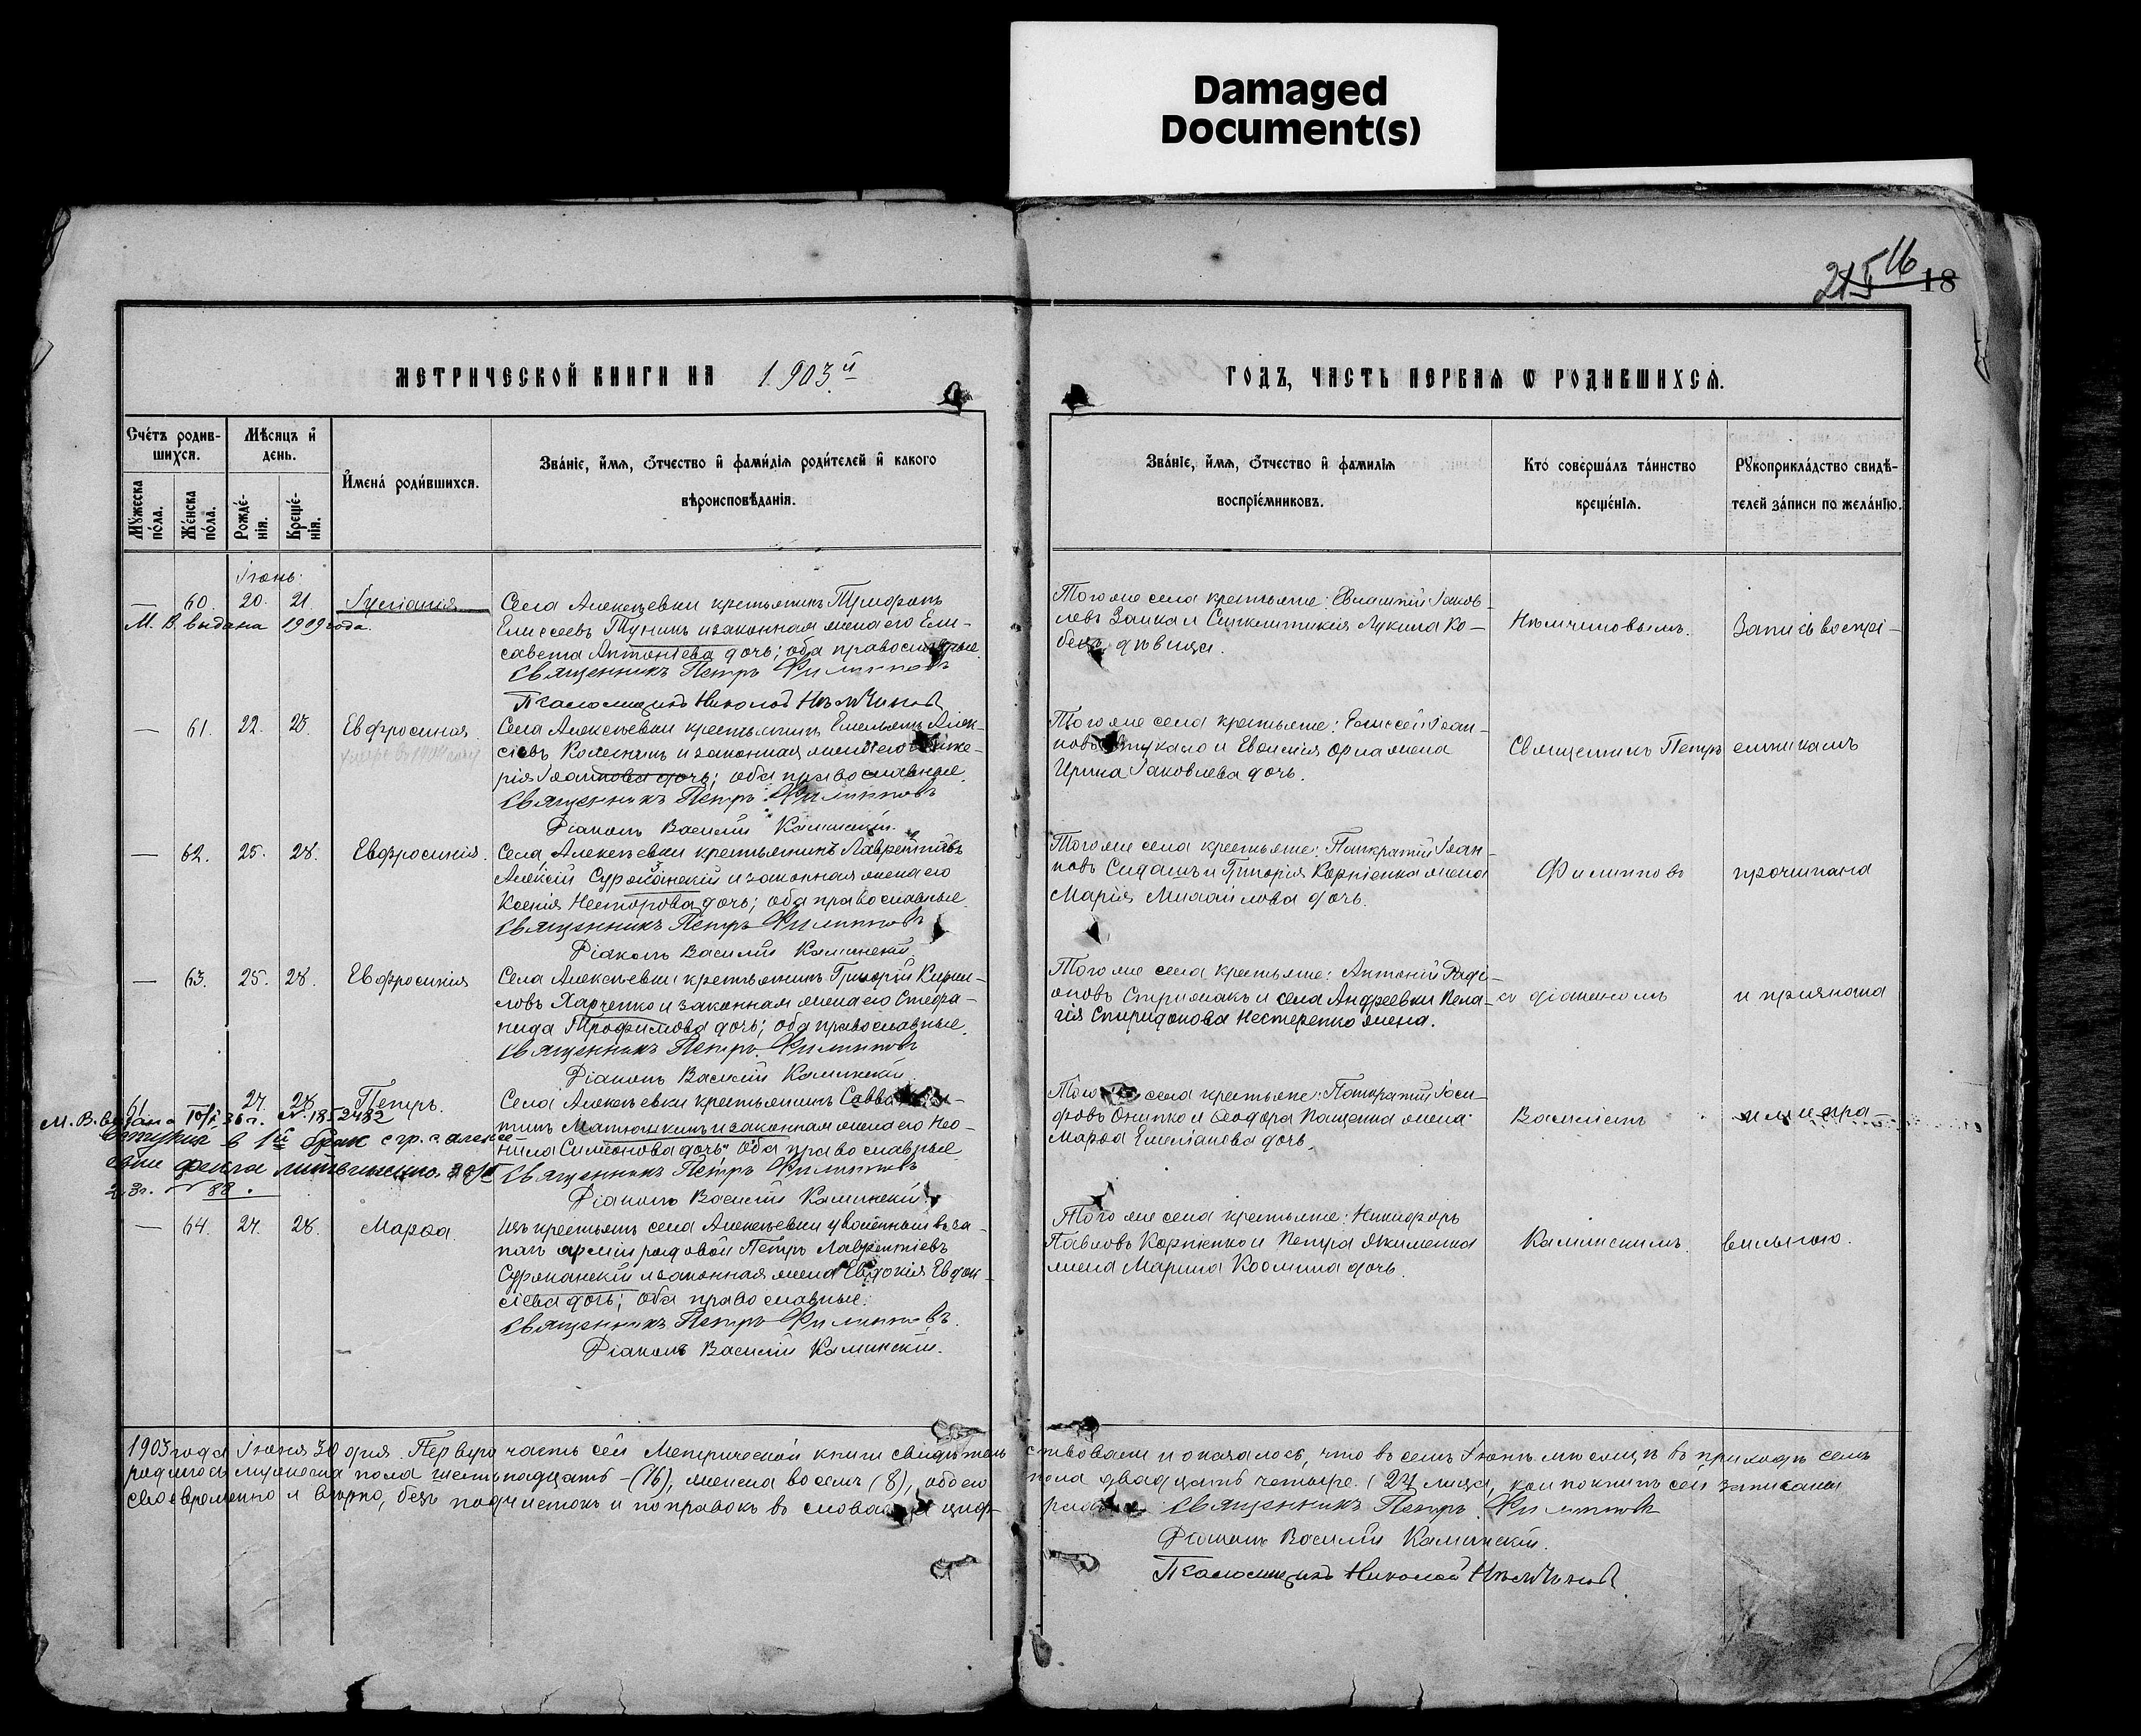 Damaged
Document(s)
215 16 18
МЕТРИЧЕСКОЙ КНИГИ НА 1903й
ГОДЪ, ЧАСТЬ ПЕРВАЯ Ѡ РОДИВШИХСЯ.
Счетъ родив-
шихся.
Мꙋжеска пола.
Женска пола.
Мѣсяцъ и
день.
Рожде-
нія.
Креще-
нія.
Имена родившихся.
Званіе, имя, отчество и фамилія родителей и какого
вѣроисповѣданія.
Званіе, имя, отчество и фамилія
воспріемниковъ.
Кто совершалъ таинство
крещенія.
Рꙋкоприкладство свидѣ-
телей записи по желанію.
Іюнь
— 60. 20. 21. Іуліанія
М. В. выдана 1909 года.
Села Алексѣевки крестьянинъ Трифонъ
Елисеевъ Тунинъ и законная жена его Ели-
савета Антоніева дочь; оба православные.
Священникъ Петръ Филипповъ
Псаломщикъ Николай Нѣмчиновъ
Того же села крестьяне: Евлампій Іаков-
левъ Заика и Синклитикія Лукина Ко-
бецъ дѣвица.
Нѣмчиновымъ.
Запись воспрі-
— 61. 22. 28. Евфросинія.
Села Алексѣевки крестьянинъ Емельянъ Алек-
сіевъ Колесникъ и законная жена его
рія Іоаннова дочь; оба православные.
Священникъ Петръ Филипповъ
Діаконъ Василій Калинскій.
Того же села крестьяне: Елиссей Іоан-
новъ и Евсимія Орла жена
Ирина Іаковлева дочь.
Священникъ Петръ
емникамъ
— 62. 25. 28. Евфросинія.
Села Алексѣевки крестьянинъ Лаврентіевъ
Алексій Суржанскій и законная жена его
Ксенія Несторова дочь; оба православные.
Священникъ Петръ Филипповъ
Діаконъ Василій Калинскій
Того же села крестьяне: Панкратій Іоан-
новъ Сидашъ и Григорія Корніенка жена
Марія Михайлова дочь.
Филипповъ
прочитана
— 63. 25. 28. Евфросинія
Села Алексѣевки крестьянинъ Григорій Кирил-
ловъ Харченко и законная жена его Стефа-
нида Трофимова дочь; оба православные.
Священникъ Петръ Филипповъ
Діаконъ Василій Калинскій.
Того же села крестьяне: Антоній Радi-
оновъ Стрижакъ и села Андреевки Пела-
гія Спиридонова Нестеренко жена.
съ діакономъ
и признана
61 27. 28 Петръ.
М. В. выдана
вступил в 1й брак с гр. с. Алексе-
Литвиненко
23г. № 88.
Села Алексѣевки крестьянинъ Савва
тинъ Матюшкинъ и законная жена его Нео-
нила Симеонова дочь; оба православные
Священникъ Петръ Филипповъ
Діаконъ Василій Калинскій.
Того же села крестьяне: Панкратій Іоси-
фовъ Онипко и Ѳеодора Пащенка жена
Марѳа Емеліанова дочь.
Василіемъ
ими пра-
— 64. 27. 28. Марѳа.
Изъ крестьянъ села Алексѣевки уволенный въ за-
пасъ арміи рядовой Петръ Лаврентіевъ
Суржанскій и законная жена Евдокія Евдок-
сіева дочь; оба православные.
Священникъ Петръ Филипповъ.
Діаконъ Василій Калинскій.
Того же села крестьяне: Никифоръ
Павловъ Корніенко и Петра Якименка
жена Марина Космина дочь.
Калинскимъ.
вильною.
1903 года Іюня 30 дня. Первую часть сей Метрической книги свидѣтельствовали и оказалось, что въ семъ Іюнѣ мѣсяцѣ въ приходѣ семъ
родилось мужеска пола шестнадцать – (16), женска восемь (8), обоего пола двадцать четыре (24 лица), кои по книгѣ сей записаны
своевременно и вѣрно, безъ подчистокъ и поправокъ въ словахъ и циф-
рахъ. Священникъ Петръ Филипповъ
Діаконъ Василій Калинскій.
Псаломщикъ Николай Нѣмчиновъ